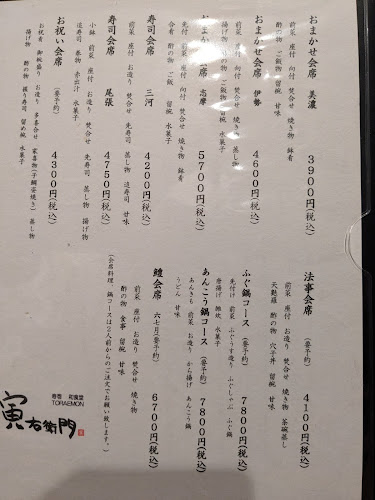 おまかせ会席 美濃 3900円(税込)
前菜 座付 お造り 焚合せ 焼き物 鉢肴
酢の物 ご飯 留椀 甘味
おまかせ会席 伊勢 4600円(税込)
前菜 座付 向付 焚合せ 焼き物 蒸し物
揚げ物 ご飯物 留椀 水菓子
志摩 5700円(税込)
前菜 座付 向付 焚合せ 焼き物 鉢肴
合肴 酢の物 ご飯 留椀 水菓子
寿司会席 三河 4200円(税込)
前菜 座付 お造り 焚合せ 蒸し物 造寿司 甘味
寿司会席 尾張 4750円(税込)
小鉢 前菜 座付 お造り 焚合せ 先寿司 蒸し物 揚げ物
追寿司 巻物 赤出汁 水菓子
お祝い会席 (要予約) 4300円(税込)
お祝肴 御椀盛り お造り 多喜合せ 家喜物(子鯛姿焼き) 蒸し物
揚げ物 酢の物 握り寿司 留め椀 水菓子
法事会席 (要予約) 4100円(税込)
前菜 座付 お造り 焚合せ 焼き物 茶碗蒸し
天麩羅 酢の物 穴子丼 留椀 甘味
ふぐ鍋コース (要予約) 7800円(税込)
先付け 前菜 ふぐうす造り ふぐしゃぶ ふぐ鍋
唐揚げ 雑炊 水菓子
あんこう鍋コース (要予約) 7800円(税込)
あんきも 前菜 お造り から揚げ あんこう鍋
うどん 甘味
鱧会席 六七月(要予約) 6700円(税込)
前菜 座付 お造り 焚合せ 焼き物
酢の物 食事 留椀 甘味
(会席料理 鍋コースは2人前からのご注文でお願い致します。)
寿司 和食堂
TORAEMON
寅右衛門